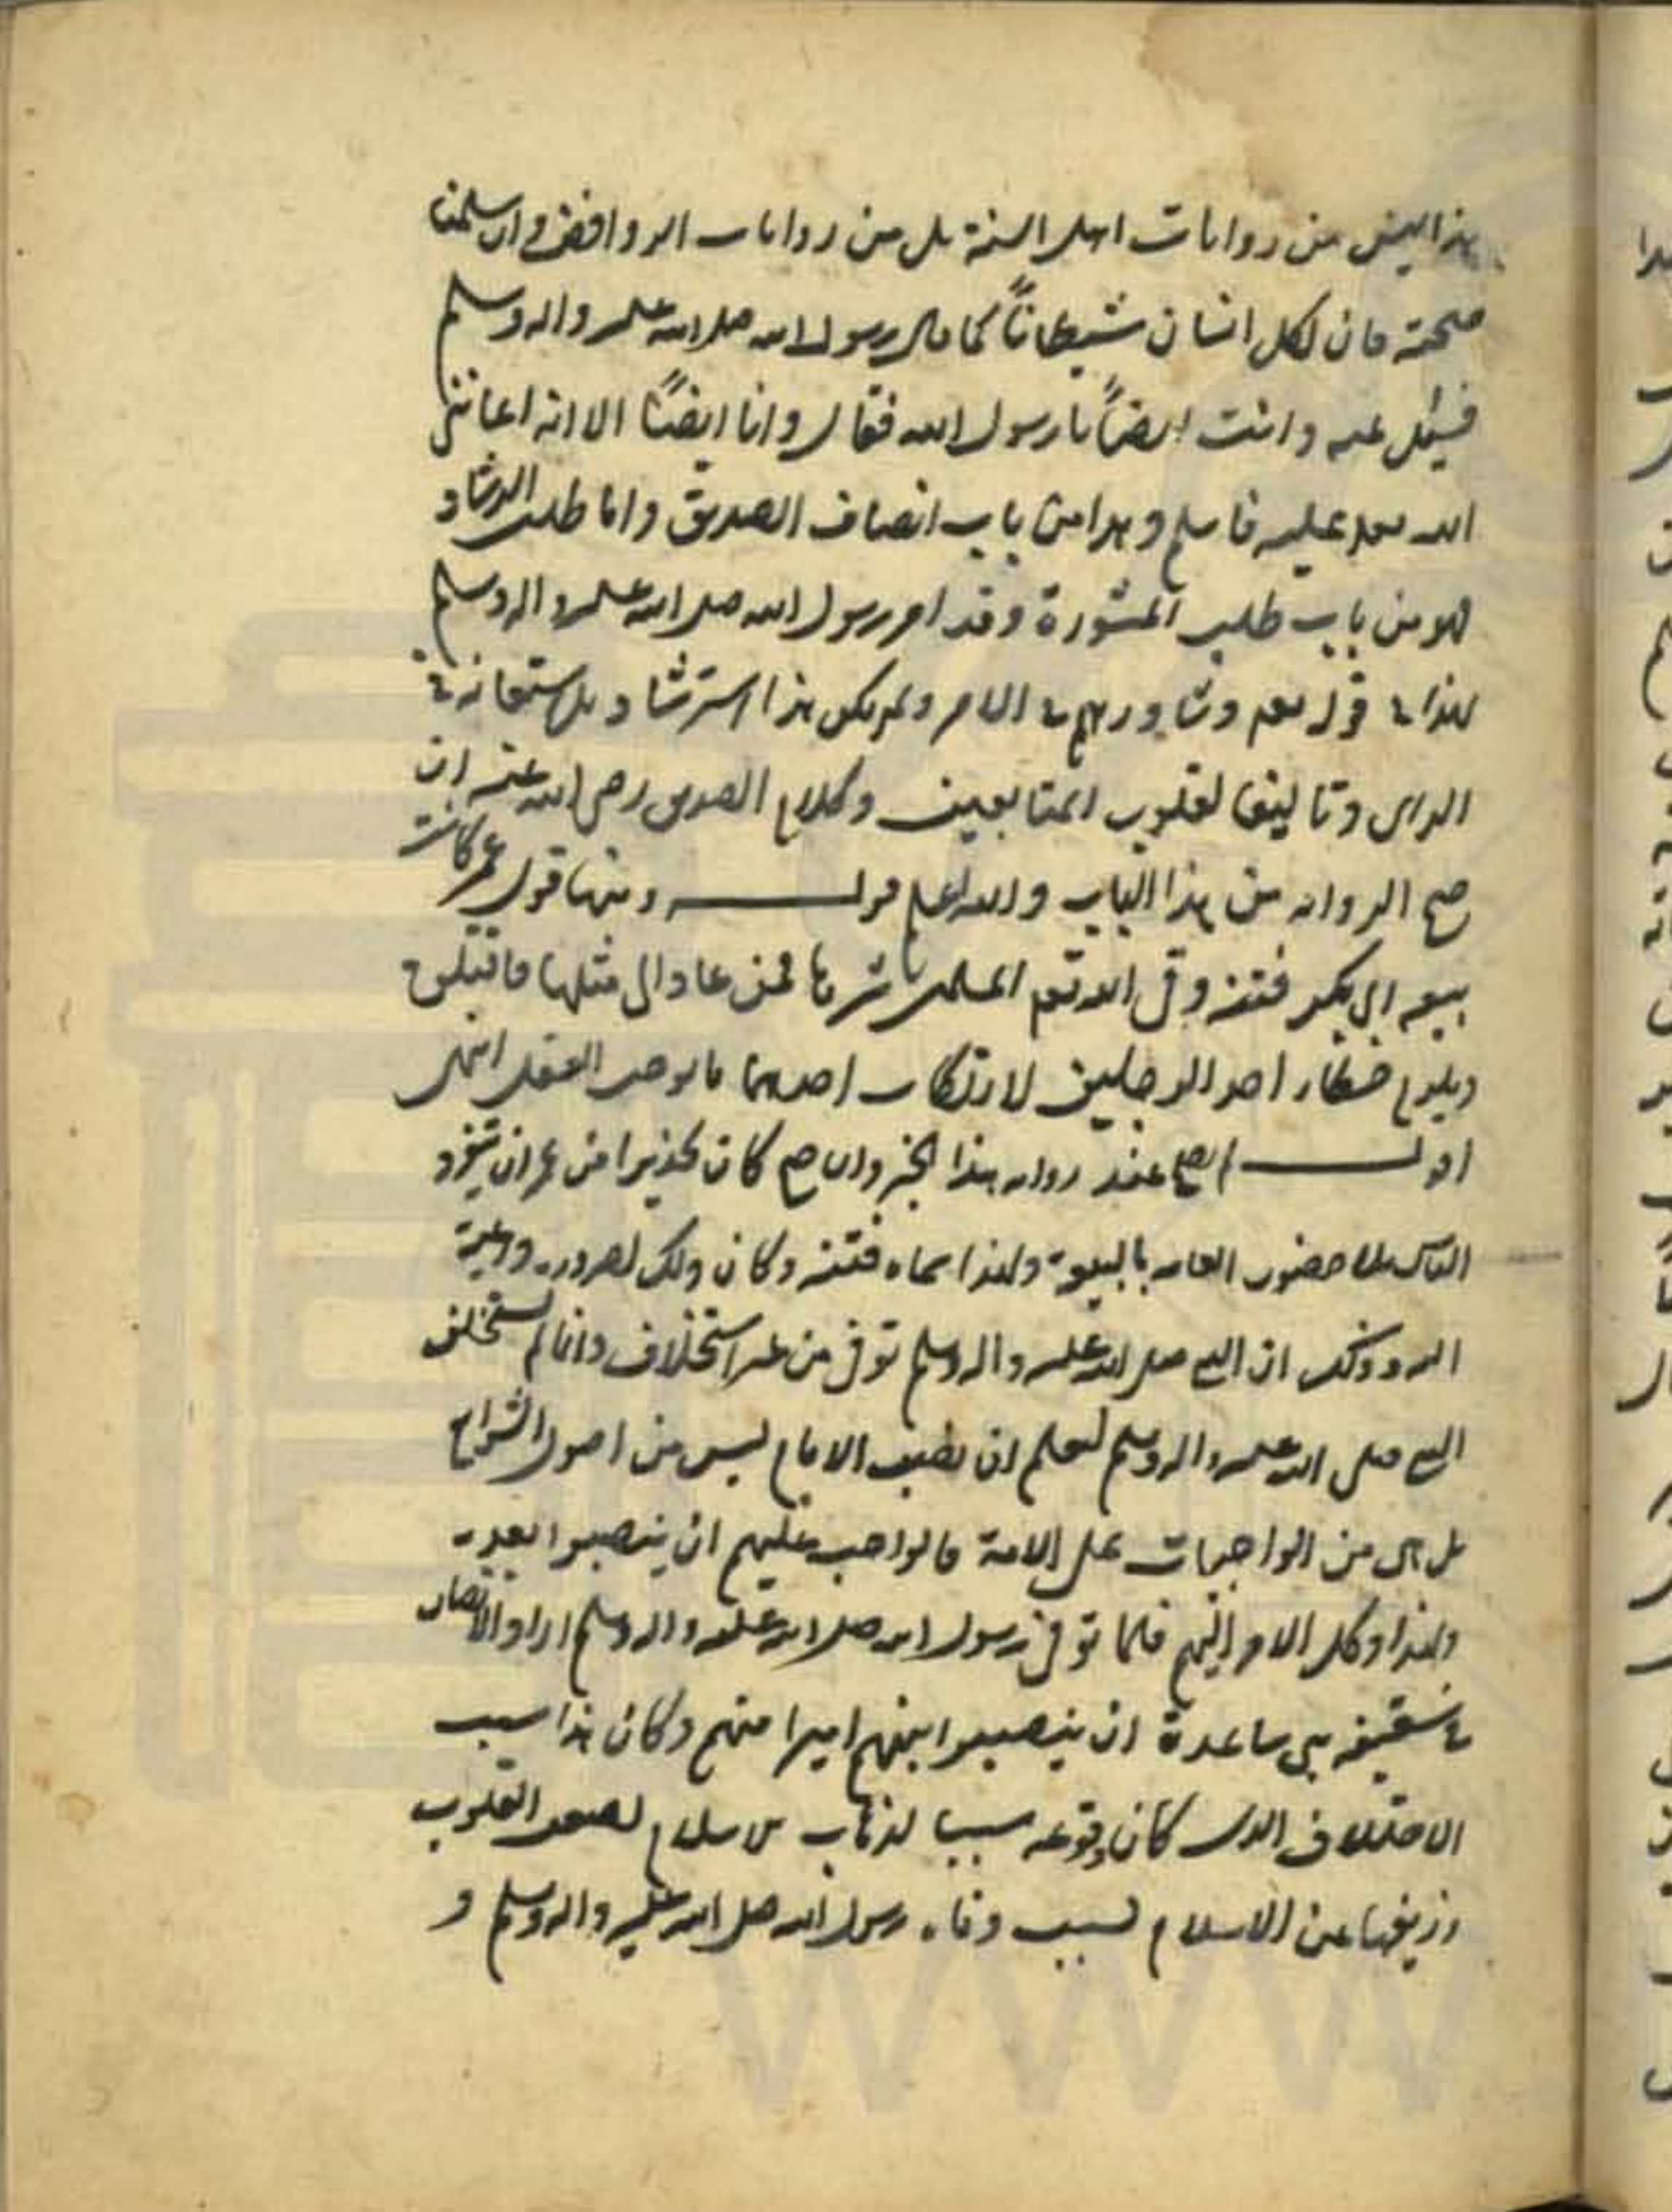 هذا ليس من روايات اهل السنة بل من روايات الروافض وان سلمنا
صحته فان لكل انسان شيطاناً كما قال رسول الله صلى الله عليه واله وسلم
فسئل عنه وانت ايضاً يا رسول الله فقال وانا ايضاً الا انه اعانني
الله تعالى عليه فاسلم وهذا من باب انصاف الصديق واما طلب الرشاد
فهو من باب طلب المشورة وقد امر رسول الله صلى الله عليه واله وسلم
بهذا في قوله تعالى وشاورهم في الامر ولم يكن هذا استرشاد بل استعانة في
الراى وتاليفا لقلوب المتابعين وكلام الصديق رضى الله عنه ان
صح الرواية من هذا الباب والله اعلم قوله ومنها قول عمر كانت
بيعة ابى بكر فتنة وقى الله تعالى المسلمين شرها فمن عاد الى مثلها فاقتلوه
ويلزم خطاء احد الرجلين لارتكاب احدهما ما يوجب القتل انتهى
اقول لم يصح عندنا رواية هذا الخبر وان صح كان تحذيرا من عمر ان يتفرد
الناس بلا حضور العامة بالبيعة ولهذا سماه فتنة وكان ذلك لضرورة داعية
اليه وذلك ان النبى صلى الله عليه واله وسلم توفى من غير استخلاف وانما لم يستخلف
النبى صلى الله عليه واله وسلم ليعلم ان نصب الامام ليس من اصول الشرايع
بل هى من الواجبات على الامة فالواجب عليهم ان ينصبوا بعده
ولهذا وكل الامر اليهم فلما توفى رسول الله صلى الله عليه واله وسلم اراد الانصار
في سقيفة بنى ساعدة ان ينصبوا بينهم اميرا منهم وكان هذا سبب
الاختلاف الذى كان وقوعه سببا لذهاب الاسلام لضعف القلوب
وزيغها عن الاسلام بسبب وفاة رسول الله صلى الله عليه واله وسلم و